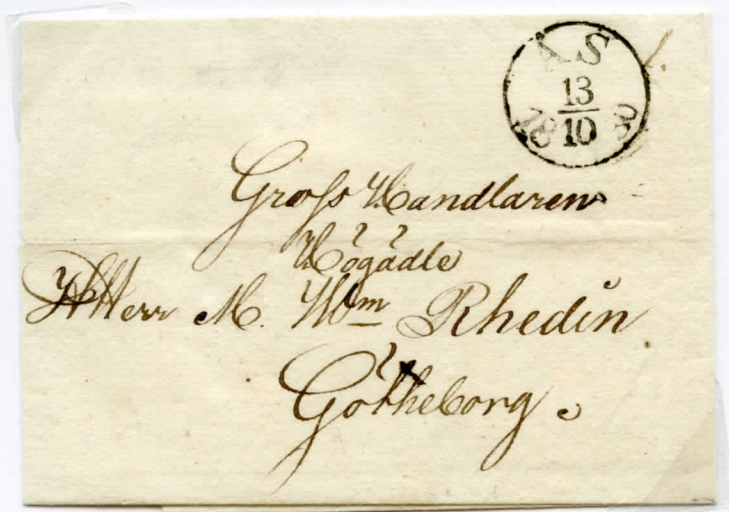 ÅS
13
10
18
Gross Handlaren
Högädle
Herr M. Wm Rhedin
Götheborg.